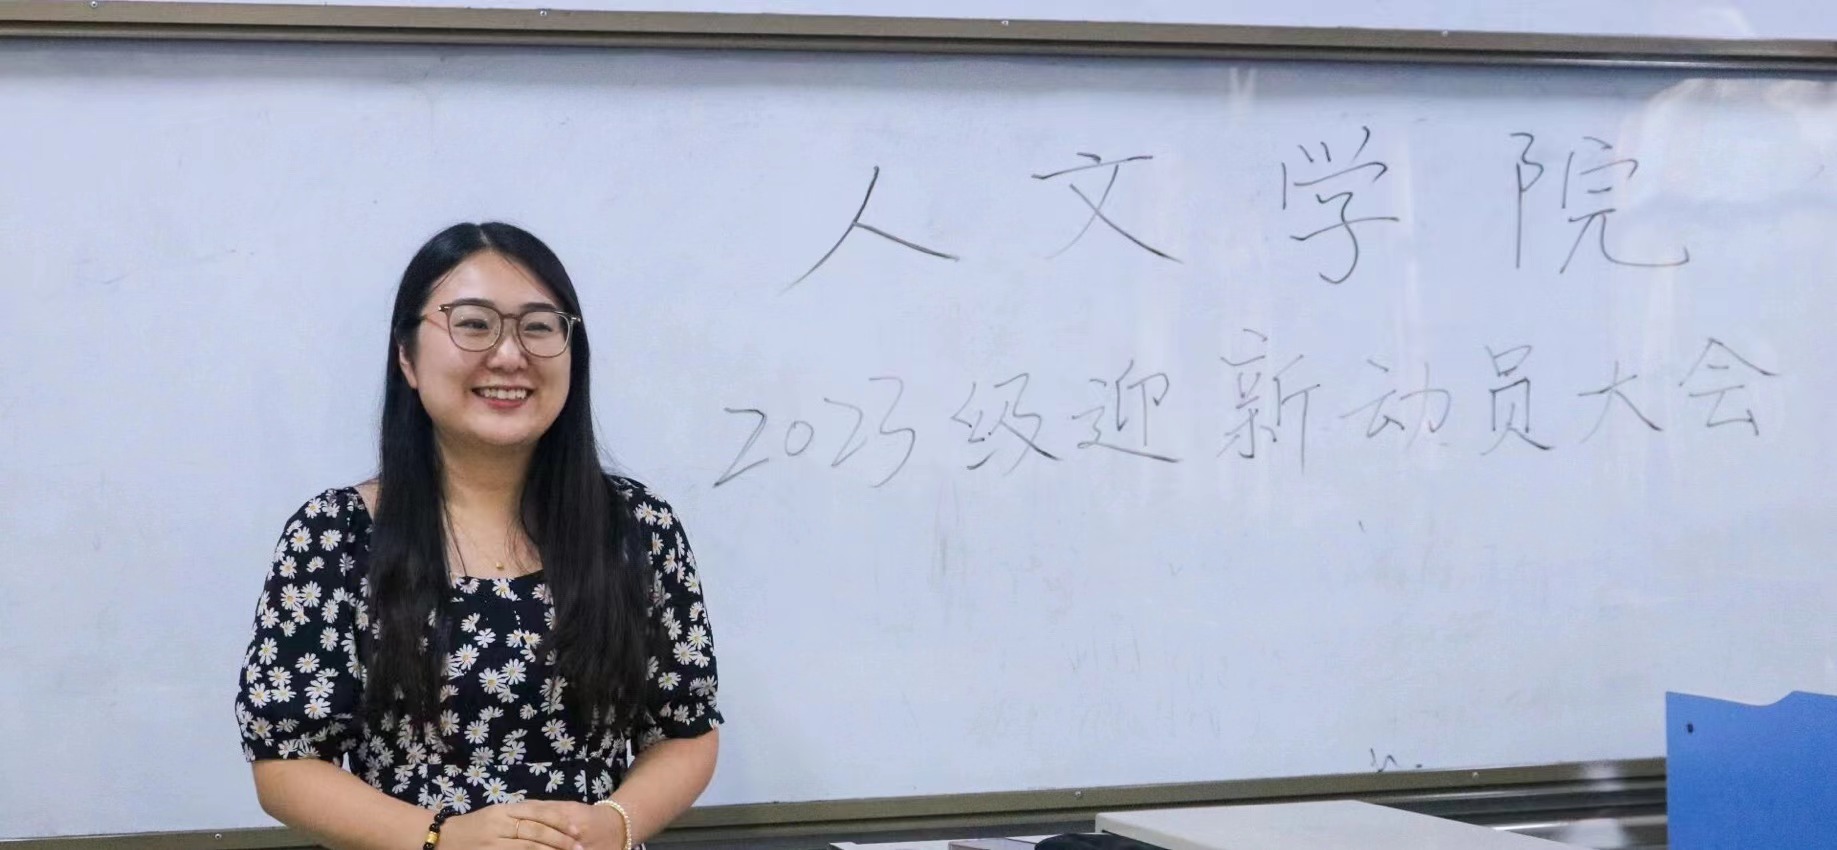 人文学院
2023级迎新动员大会